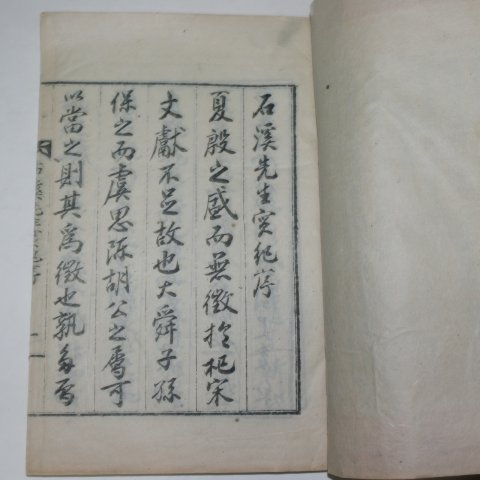 石溪先生實紀序
夏殷之盛而無徵於杞宋
文獻不足故也大舜子孫
保之而虞思陳胡公之屬可
以當之則其爲徵也孰多焉
石溪先生實紀序 一